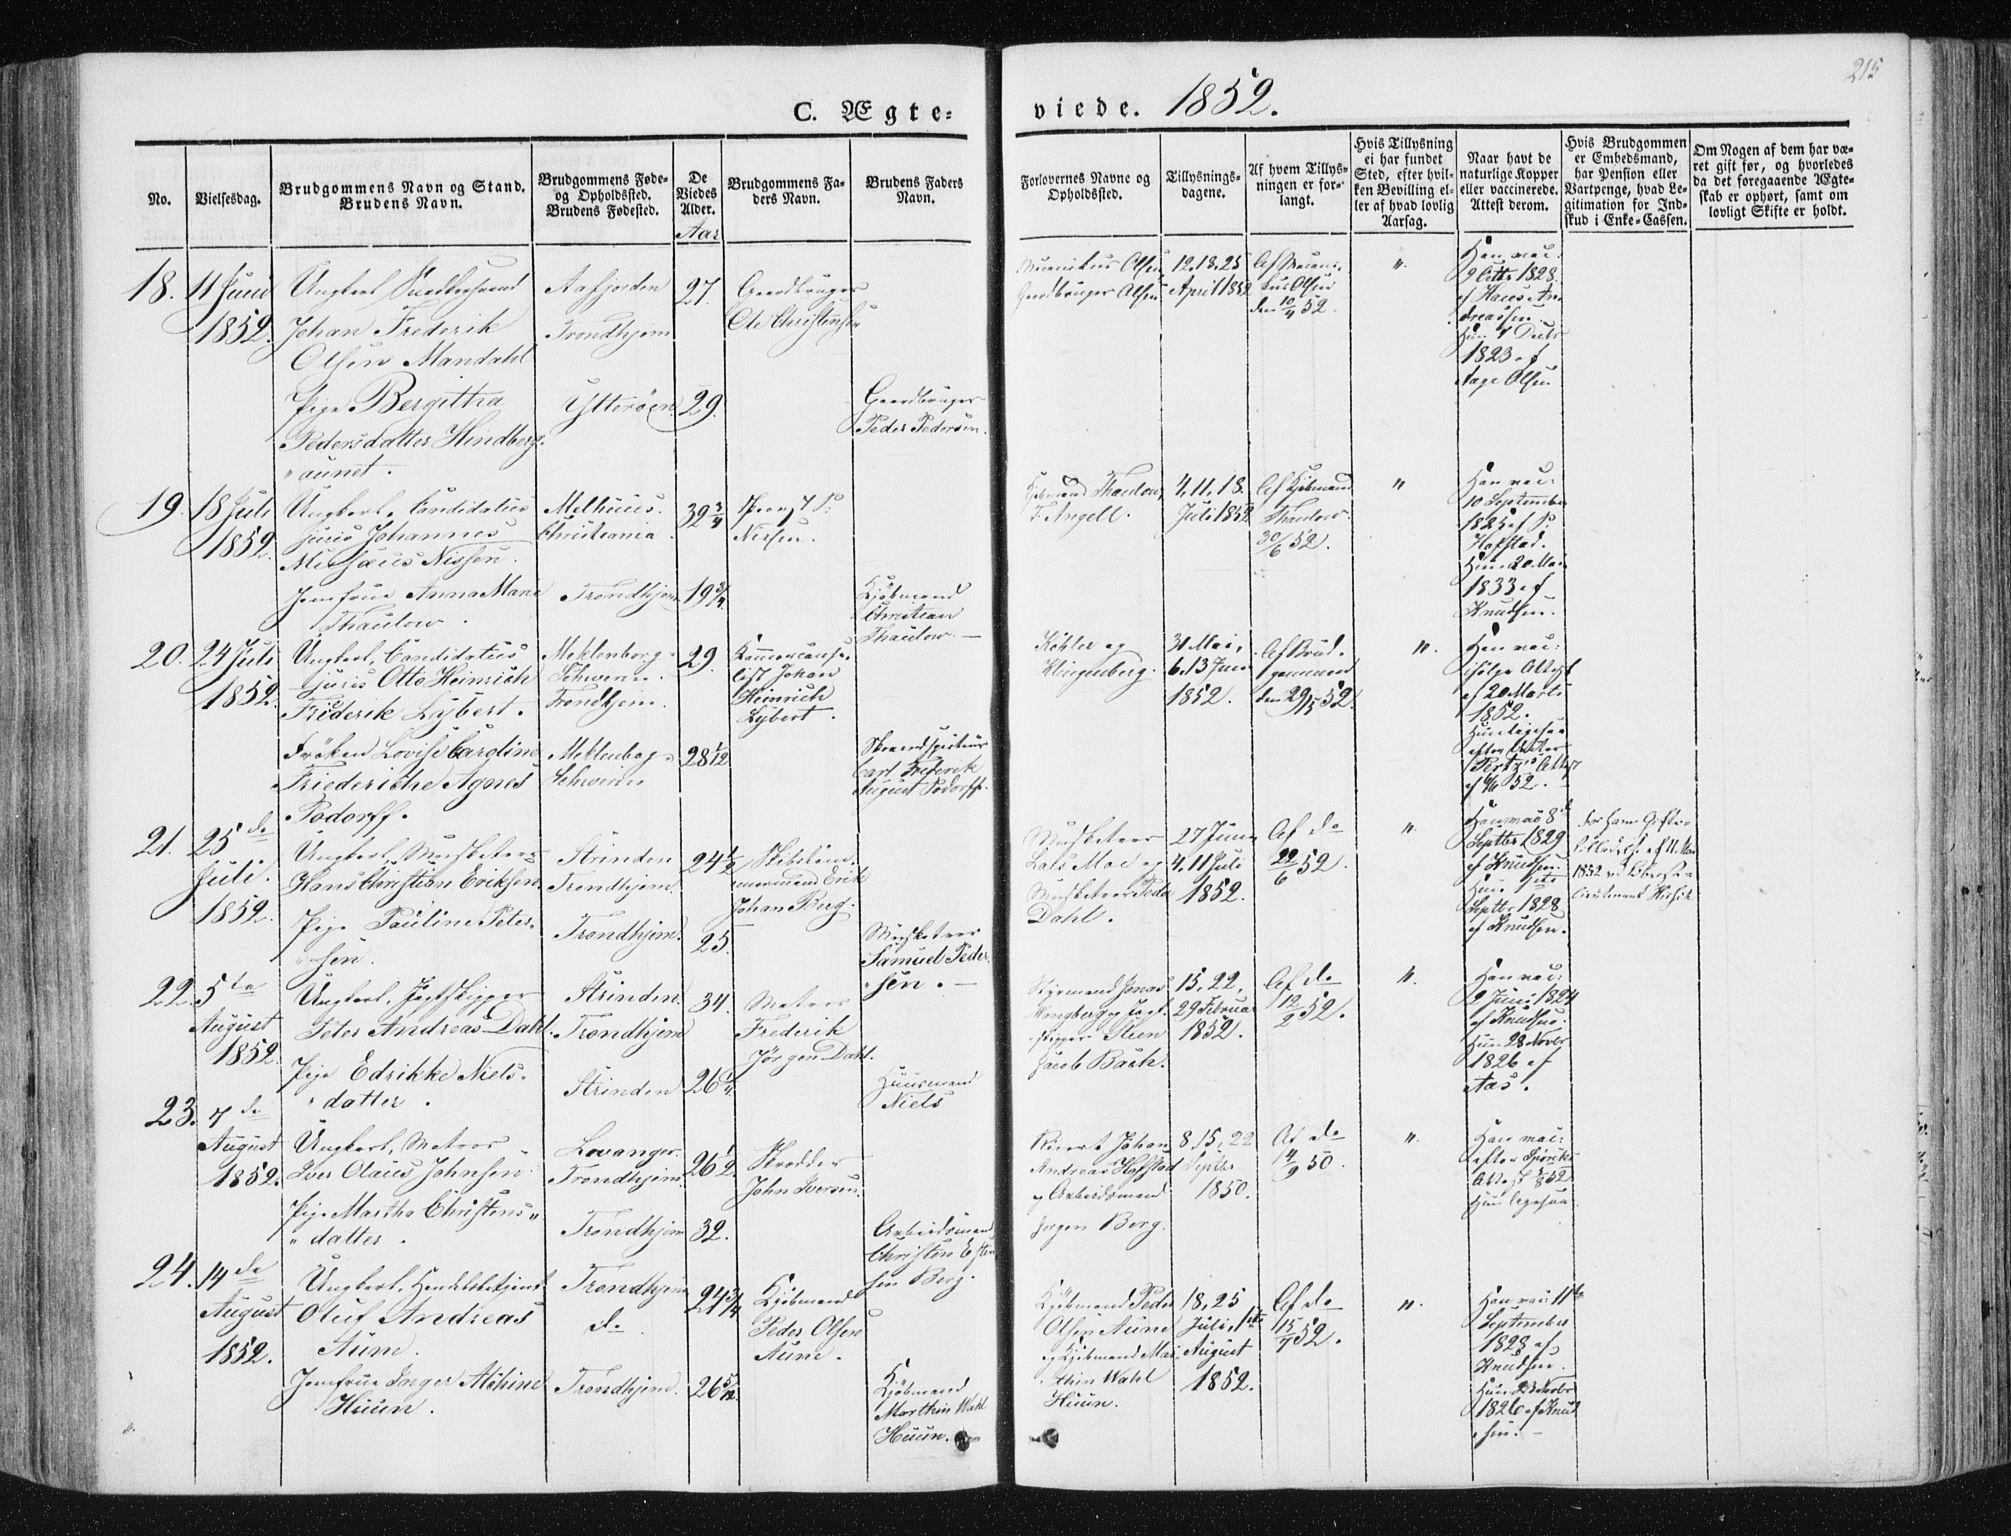 215
C. Ægte-
viede. 1852.
No.
Vielsesdag.
Brudgommens Navn og Stand.
Brudens Navn.
Brudgommens Føde-
og Opholdssted.
Brudens Fødested.
De
Viedes
Alder.
Aar
Brudgommens Fa-
ders Navn.
Brudens Faders
Navn.
Forlovernes Navne og
Opholdssted.
Tillysnings-
dagene.
Af hvem Tillys-
ningen er for-
langt.
Hvis Tillysning
ei har fundet
Sted, efter hvil-
ken Bevilling el-
ler af hvad lovlig
Aarsag.
Naar havt de
naturlige Kopper
eller vaccinerede.
Attest derom.
Hvis Brudgommen
er Embedsmand,
har Pension eller
Vartpenge, hvad Le-
gitimation for Ind-
skud i Enke-Cassen.
Om Nogen af dem har væ-
ret gift før, og hvorledes
da det foregaaende Ægte-
skab er ophørt, samt om
lovligt Skifte er holdt.
18.
11 Juni
1852.
Ungkarl
Johan Frederik
Olsen Mandahl
Pige Bergitha
Pedersdatter Hindberg-
aunet.
Aafjorden
Trondhjem
Ytterøen
27
29.
Gaardbruger
Ole Christensen
Gaardbruger
Peder Pedersen.
Olsen
Gaardbruger Olsen
12, 18, 25
April 1852
Af
Olsen
den 10/4 52.
"
Han vac:
9 Octbr 1828
af Hans An-
dreassen
Hun 4
1823 af
Aage Olsen
19.
18 Juli
1852.
Ungkarl, Candidatus
juris Johannes
Nissen.
Jomfrue Anna Marie
Thaulow.
Melhuus.
Christiania.
Trondhjem
32 3/4
19 3/4
Nissen.
Kjøbmand
Christian
Thaulow.
Kjøbmand Thaulow,
T. Angell.
4, 11, 18.
Juli 1852
Af Kjøbmand
Thaulow.
30/6 52.
"
Han vac:
10 September
1825 af P:
Hofstad.
Hun 20 Mai
1833 af
Knudsen.
20.
24 Juli
1852.
Ungkarl, Candidatus
juris Otto Heinrich
Friderik Lybert.
Frøken Lovise Caroline
Friederiche Agnes
Podorff.
Meklenborg-
Schwerin.
Trondhjem.
Meklenborg-
Schwerin
29.
28 1/12
list Johan
Heinrich
Lybert.
Carl Frederik
August Podorff.
Köhler og
Klingenberg.
31 Mai,
6, 13 Juni
1852.
Af Brud-
gommen
den 29/5 52.
"
Han vac:
ifølge Attest
af 20 Marts
1852.
Hun ligesaa
efter
Attest
af 52.
21.
25 de
Juli.
1852.
Ungkarl, Musketeer
Hans Christian Eriksen.
Pige Pauline Peter-
sen.
Strinden
Trondhjem
Trondhjem.
24 1/2
25.
Skibstøm-
mermand Erik
Johan Berg.
Musketeer
Samuel Peder-
sen.
Musketeer
Lars Moe og
Musketeer Peder
Dahl.
27 Juni
4, 11 Juli
1852.
Af do
22/6 52.
"
Han vac 8 de
Septbr 1829
af Knudsen
Hun
Septbr 1828
af Knudsen.
for ham Gifte-
af 11 Mai
1852
Lieutenant
22.
5 te
August
1852.
Ungkarl, Jagtskipper
Peter Andreas Dahl.
Pige Edrikke Niels-
datter.
Strinden
Trondhjem
Strinden
34.
26 1/4
Matros
Frederik
Jørgen Dahl.
Huusmand
Niels
Styrmand Jonas
og Jagt-
skipper Steen
Jacob Bach.
15, 22,
29 Februar
1852.
Af do
12/2 52.
"
Han vac:
2 Juni 1824
af Knudsen.
Hun 28 Novbr
1826 af
Aas.
23.
7 de
August
1852.
Ungkarl, Matros
Iver Olaus Johnsen
Pige Martha Christens-
datter.
Levanger.
Trondhjem.
Trondhjem
26 1/2
32.
Skrædder
John Iversen.
Arbeidsmand
Christen Esten-
sen Berg.
Johan
Andreas Hofstad
og Arbeidsmand
Jørgen Berg.
8, 15, 22
Septbr
1850.
Af do
4/9 50.
"
Han vac:
efter
Attest 52
Hun ligesaa
24.
14 de
August
1852.
Ungkarl, Handelsbetjent
Oluf Andreas
Aune.
Jomfrue Inger Alchine
Huun.
Trondhjem
do.
Trondhjem.
24 3/4
26 5/12
Kjøbmand
Peder Olsen
Aune.
Kjøbmand
Marthin Wahl
Huun.
Kjøbmand Peder
Olsen Aune
og Kjøbmand Mar-
thin Wahl
Huun.
18, 25
Juli, 1ste
August
1852.
Af do
15/7 52.
"
Han vac: 11te
September
1828 af
Knudsen.
Hun 23 Novbr
1826 af Knud-
sen.